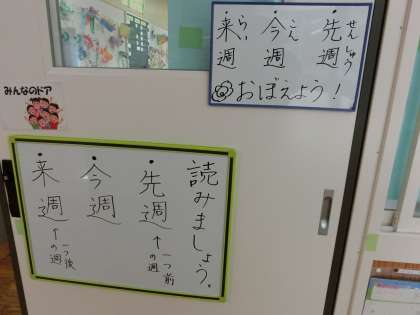 ・先週
せんしゅう
・今週
こん
・来週
らい
おぼえよう!
みんなのドア
読みましょう。
・先週
↑一つ前の週
・今週
・来週
↑一つ後の週